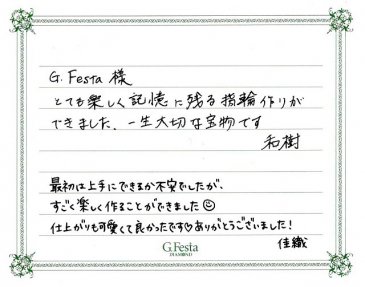 G.Festa 様
とても楽しく記憶に残る指輪作りが
できました。一生大切な宝物です
和樹
最初は上手にできるか不安でしたが、
すごく楽しく作ることができました☺
仕上がりも可愛くて良かったです♡ありがとうございました!
佳織
G.Festa
DIAMOND